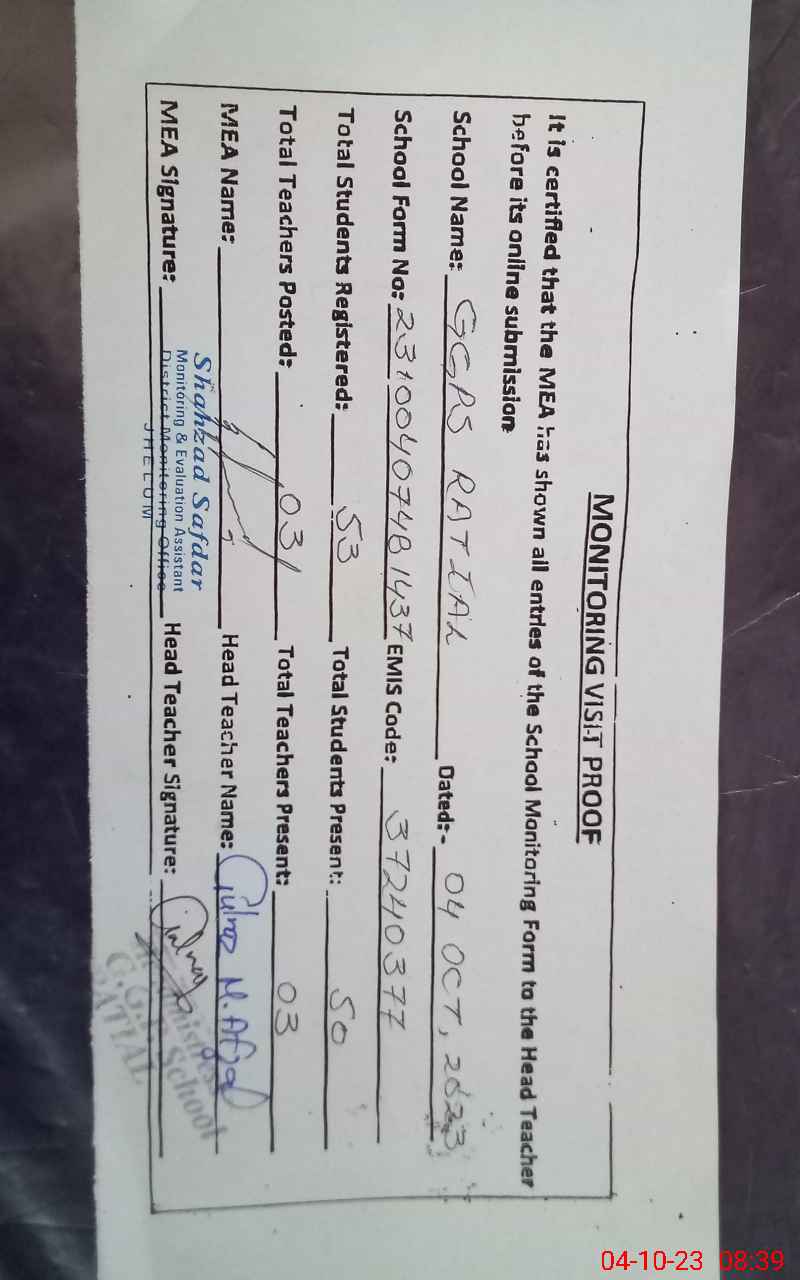 MONITORING VISIT PROOF
It is certified that the MEA has shown all entries of the School Monitoring Form to the Head Teacher
before its online submission
School Name: GGPS RATIAL Dated:- 04 OCT, 2023
School Form No: 23100407481437 EMIS Code: 37240377
Total Students Registered: 53 Total Students Present: 50
Total Teachers Posted: 03 Total Teachers Present: 03
MEA Name: Head Teacher Name: Gulnaz M. Afzal
MEA Signature: Head Teacher Signature:
Shahzad Safdar
Monitoring & Evaluation Assistant
District Monitoring Office
JHELUM
G.G.P. School
RATIAL
04-10-23 08:39